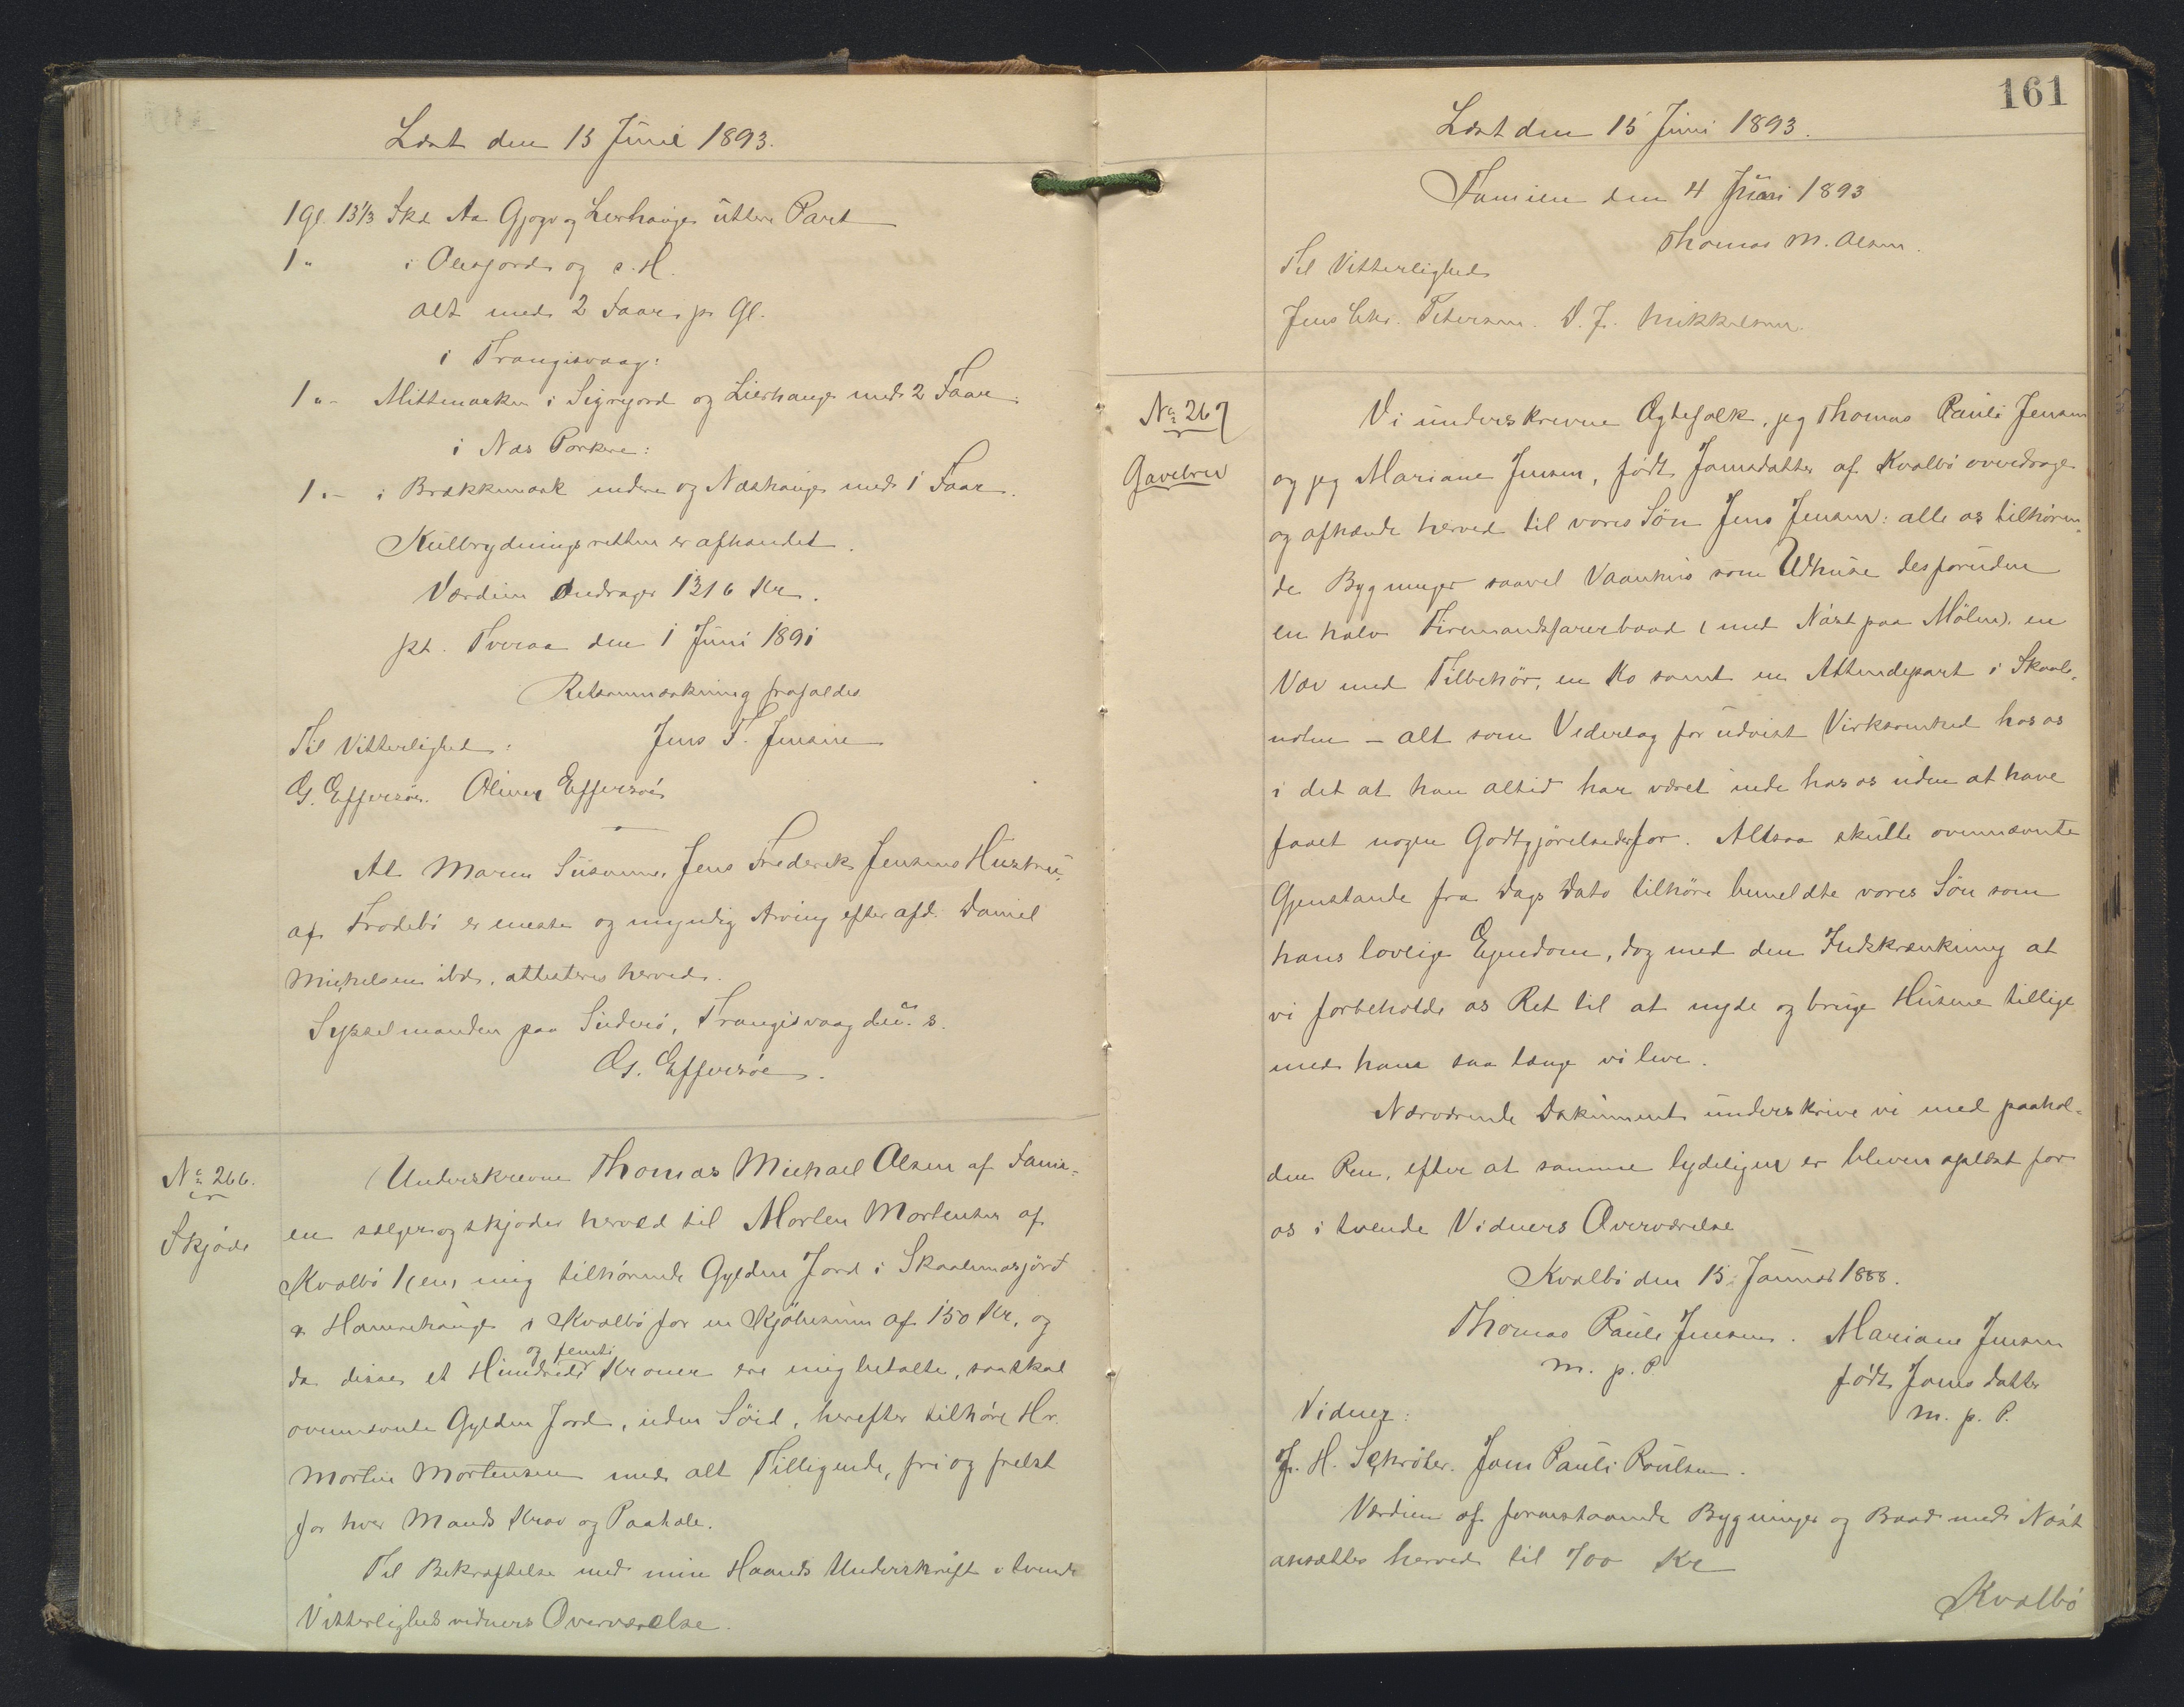 Læst den 15 Juni 1893.
1 Gl. 13⅓ Skd. Aa Gjogv og Lerhauge üttere Part
1 " i Olesjord og s. H.
alt med 2 Faar pr Gl.
i Trangisvaag:
1 " - Mittmarken i Sigrijord og Lierhauge med 2 Faar.
i Næs Porkere:
1 " - i Brækkemark indere og Næshauge med 1 Faar.
Kulbrydningsretten er afhændet.
Værdien andrager 1316 Kr.
pt. Tveraa den 1 Juni 1891
Retsanmærkning frafaldes
Til Vitterlighed: Jens F. Jensen
G. Effersöe. Oliver Effersöe
At Maren Susanne, Jens Frederik Jensens Hustru,
af Frodebö er eneste og myndig Arving efter afd. Daniel
Michelsen ibd., attesteres herved.
Sysselmanden paa Suderö, Trangisvaag d. u. s.
G. Effersöe.
No 266.
Skjöde
Underskrevne Thomas Michael Olsen af Fami-
en sælger og skjøder herved til Morten Mortensen af
Kvalbö 1 (en) mig tilhörende Gylden Jord i Skaalemasjörd
a Hamrehauge i Kvalbö for en Kjöbesum af 150 Kr, og
da disse et Hundrede og femti Kroner ere mig betalte, saa skal
ovennævnte Gylden Jord, uden Söid, herefter tilhöre Hr.
Morten Mortensen med alt Tilligende, fri og frelst
for hver Mands Krav og Paatale.
Til Bekræftelse med min Haands Underskrift i tvende
Vitterlighedsvidners Overværelse.
161
Læst den 15 Juni 1893.
Famien den 4 Juni 1893
Thomas M. Olsen.
Til Vitterlighed
Jens Chr. Petersen. D. J. Mikkelsen.
No 267
Gavebrev
Vi underskrevne Ægtefolk, jeg Thomas Pauli Jensen
og jeg Mariane Jensen, födt Joensdatter af Kvalbö overdrage
og afhænde herved til vores Sön Jens Jensen: alle os tilhören-
de Bygninger saavel Vaanhus som Udhuse desforuden
en halv Firemandsfarerbaad (med Nöst paa Mölen), en
Væv med Tilbehör, en Ko samt en Attendepart i Skaale-
nolen - alt som Vederlag for udvist Virksomhed hos os
i det at han altid har været inde hos os uden at have
faaet nogen Godtgjörelse derfor. Altsaa skulle ovennævnte
Gjenstande fra Dags Dato tilhöre bemeldte vores Sön som
hans lovlige Ejendom, dog med den Indskrænkning at
vi forbeholde os Ret til at nyde og bruge Husene tillige
med ham saa længe vi leve.
Nærværende Dokument underskrive vi med paahol-
den Pen, efter at samme lydeligen er bleven oplæst for
os i tvende Vidners Overværelse
Kvalbö den 15 Januar 1888.
Thomas Pauli Jensen. Mariane Jensen
m. p. P. födt Joensdatter
Vidner: m. p. P.
J. H. Schröter. Joen Pauli Poulsen.
Værdien af foranstaaende Bygninger og Baad med Nöst
ansættes herved til 700 Kr
Kvalbö